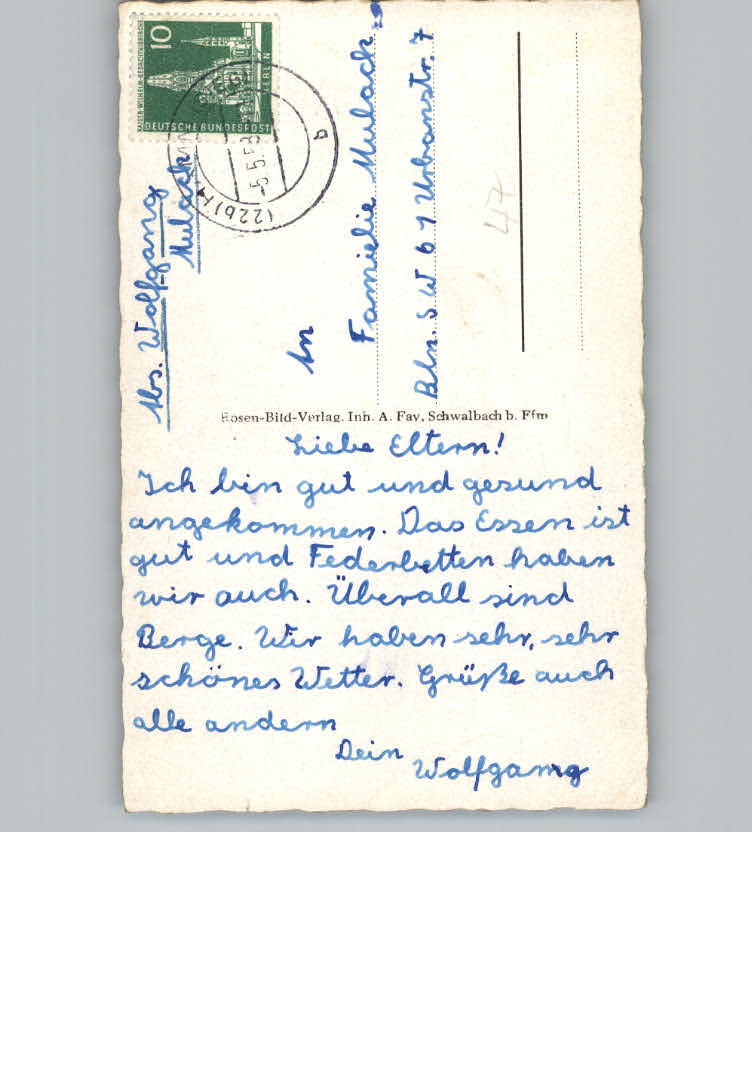 10
KAISER-WILHELM-GEDÄCHTNISKIRCHE
BERLIN
DEUTSCHE BUNDESPOST
(22b)
-5.5.58
b
Abs. Wolfgang
Mulack
An
Familie Mulack
Bln. SW 61 Urbanstr. 7
47
Rosen-Bild-Verlag. Inh. A. Fay, Schwalbach b. Ffm
Liebe Eltern!
Ich bin gut und gesund
angekommen. Das Essen ist
gut und Federbetten haben
wir auch. Überall sind
Berge. Wir haben sehr, sehr
schönes Wetter. Grüße auch
alle andern
Dein
Wolfgamg